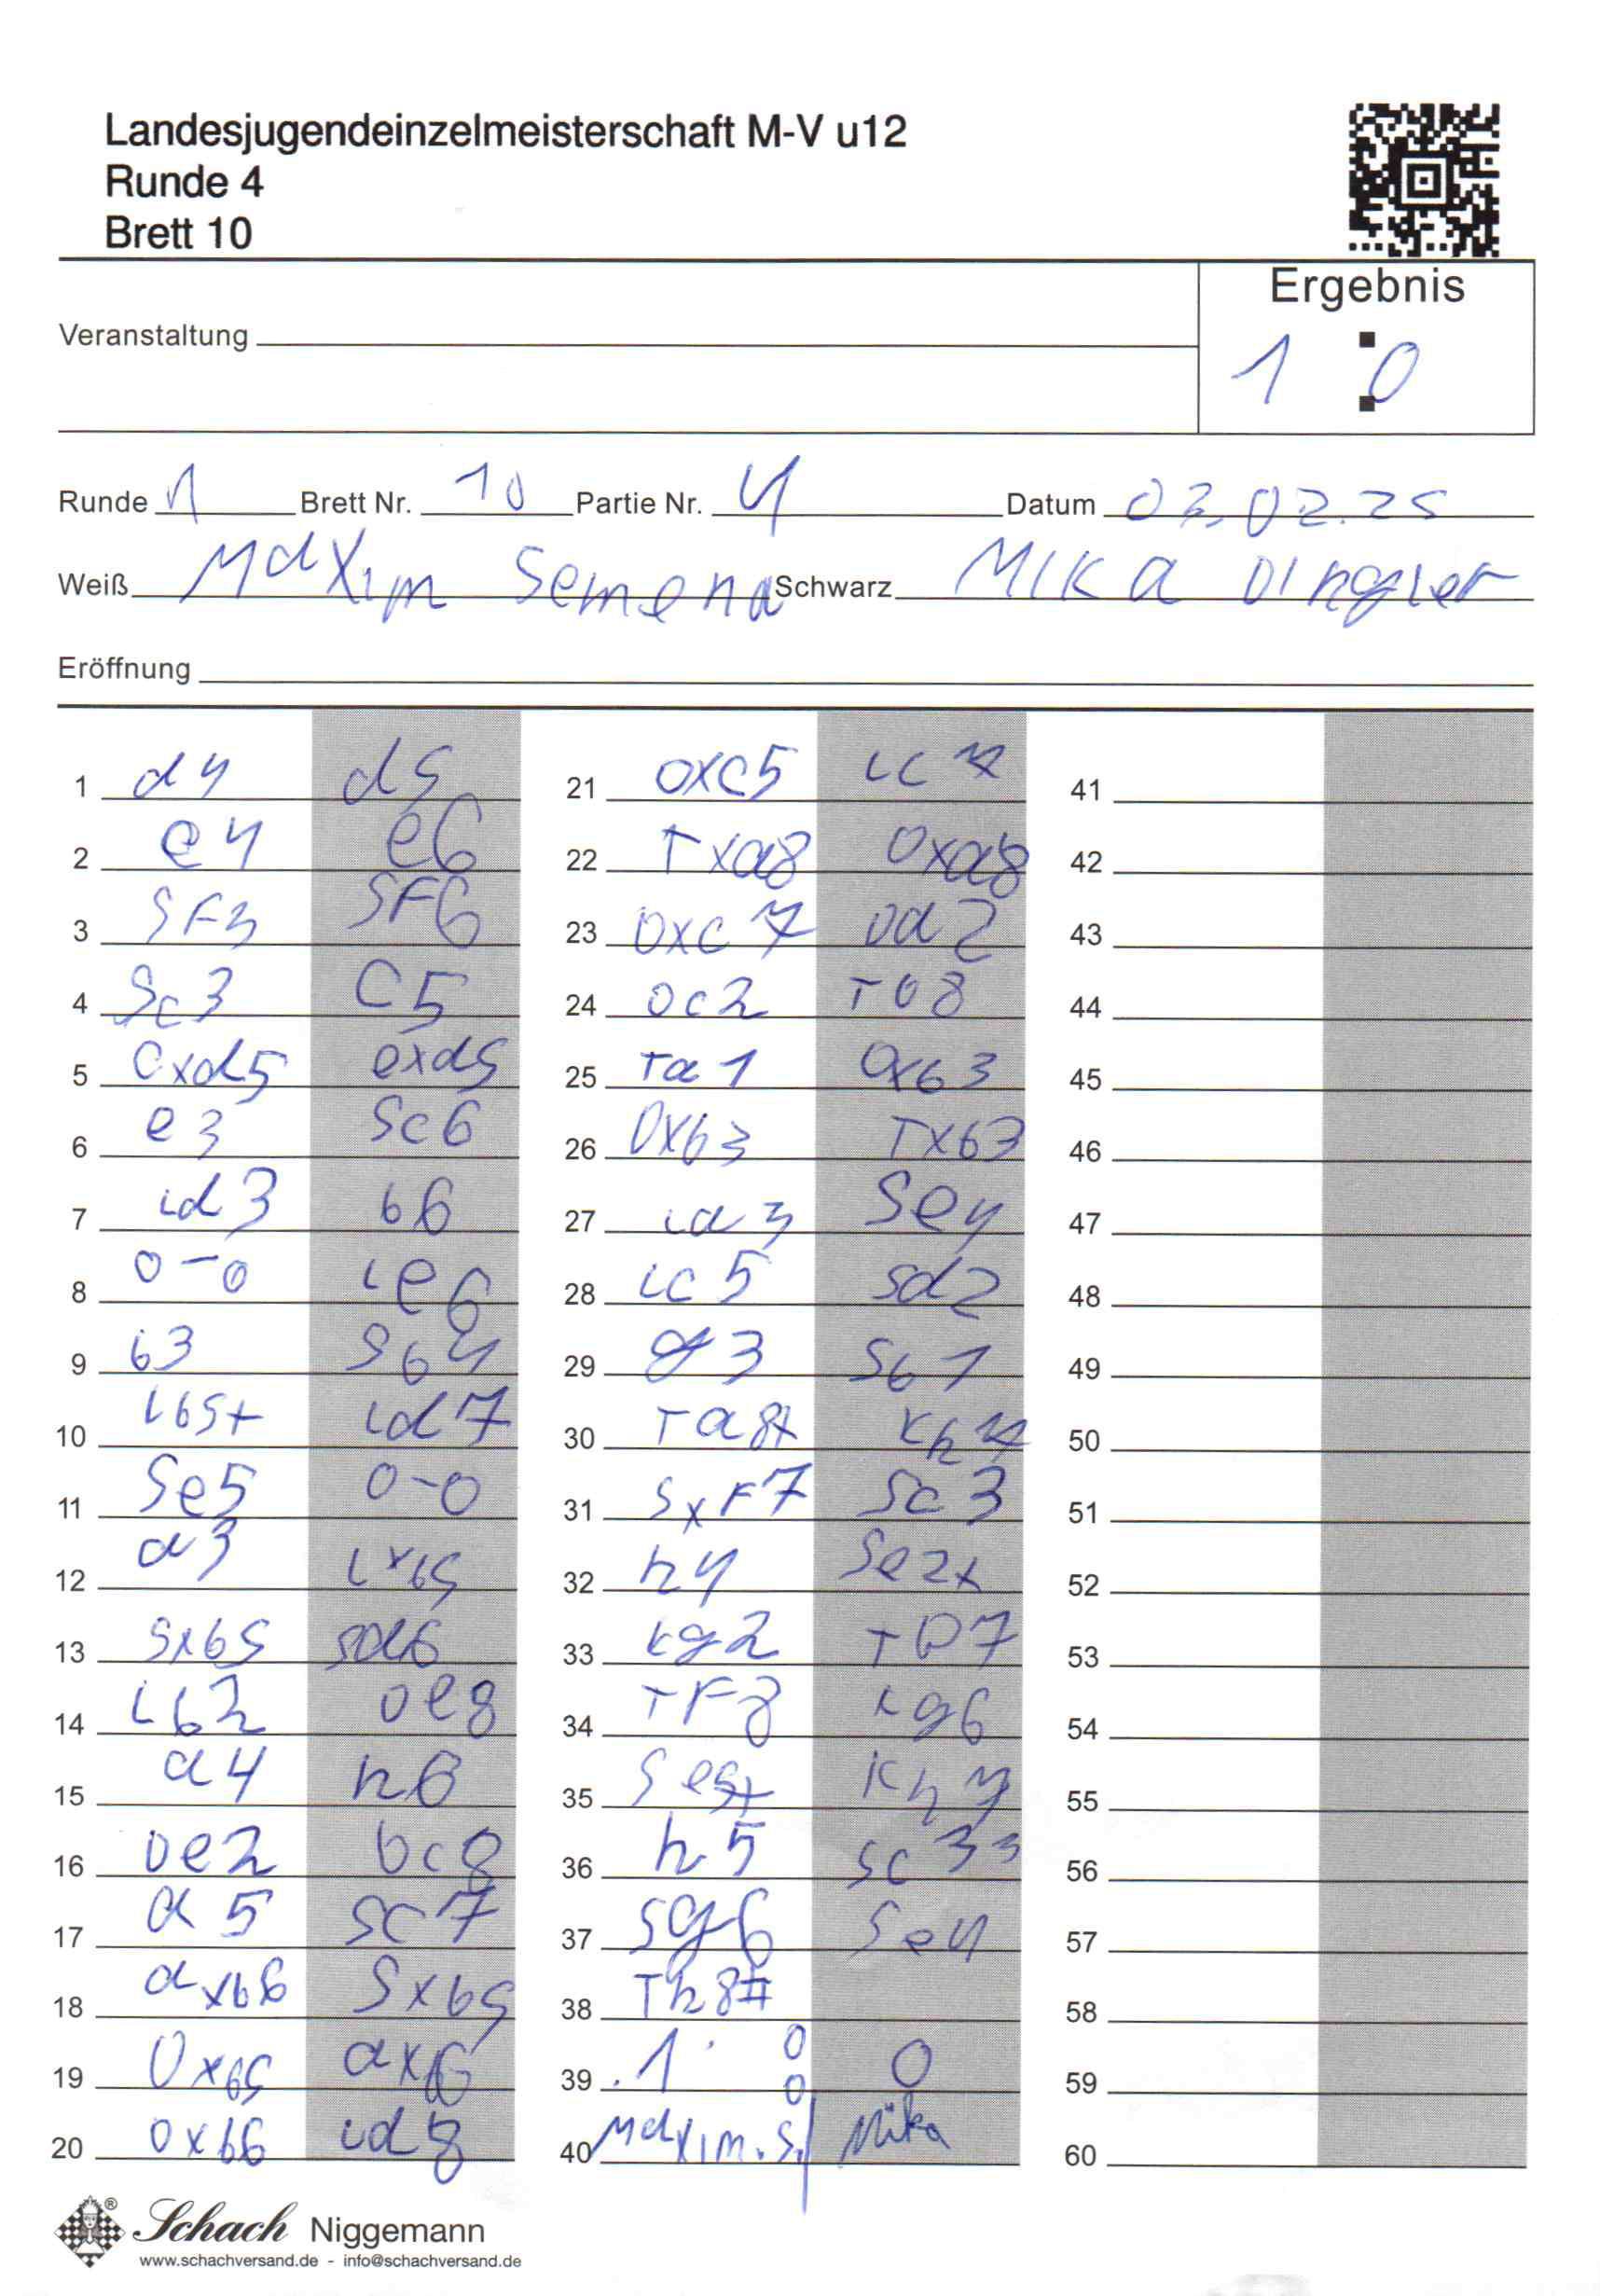 Landesjugendeinzelmeisterschaft M-V u12
Runde 4
Brett 10
Ergebnis
1 : 0
Veranstaltung
Runde 1 Brett Nr. 10 Partie Nr. 4 Datum 03.02.25
Weiß Maxim Semena Schwarz MIKA Dingler
Eröffnung
1 d4 d5
2 e4 e6
3 SF3 SF6
4 Sc3 C5
5 Cxd5 exd5
6 e3 Sc6
7 Ld3 b6
8 0-0 Le6
9 b3 Sb4
10 Lb5+ Ld7
11 Se5 0-0
12 a3 Lxb5
13 Sxb5 Sd6
14 Lb2 De8
15 a4 h6
16 De2 Dc8
17 a5 Sc7
18 axb6 Sxb5
19 Dxb5 axb6
20 Dxb6 Ld8
21 Dxc5 Lc7
22 Txa8 Dxa8
23 Dxc7 Da2
24 Dc2 Tb8
25 Ta1 Dxb3
26 Dxb3 Txb3
27 La3 Se4
28 Lc5 Sd2
29 g3 Sb1
30 Ta8+ Kh7
31 SxF7 Sc3
32 h4 Se2+
33 Kg2 Tb7
34 TF8 Kg6
35 Se5+ Kh7
36 h5 Sc3
37 Sg6 Se4
38 Th8#
39 1 : 0
40 Maxim.S. Mika
41
42
43
44
45
46
47
48
49
50
51
52
53
54
55
56
57
58
59
60
Schach Niggemann
www.schachversand.de - info@schachversand.de